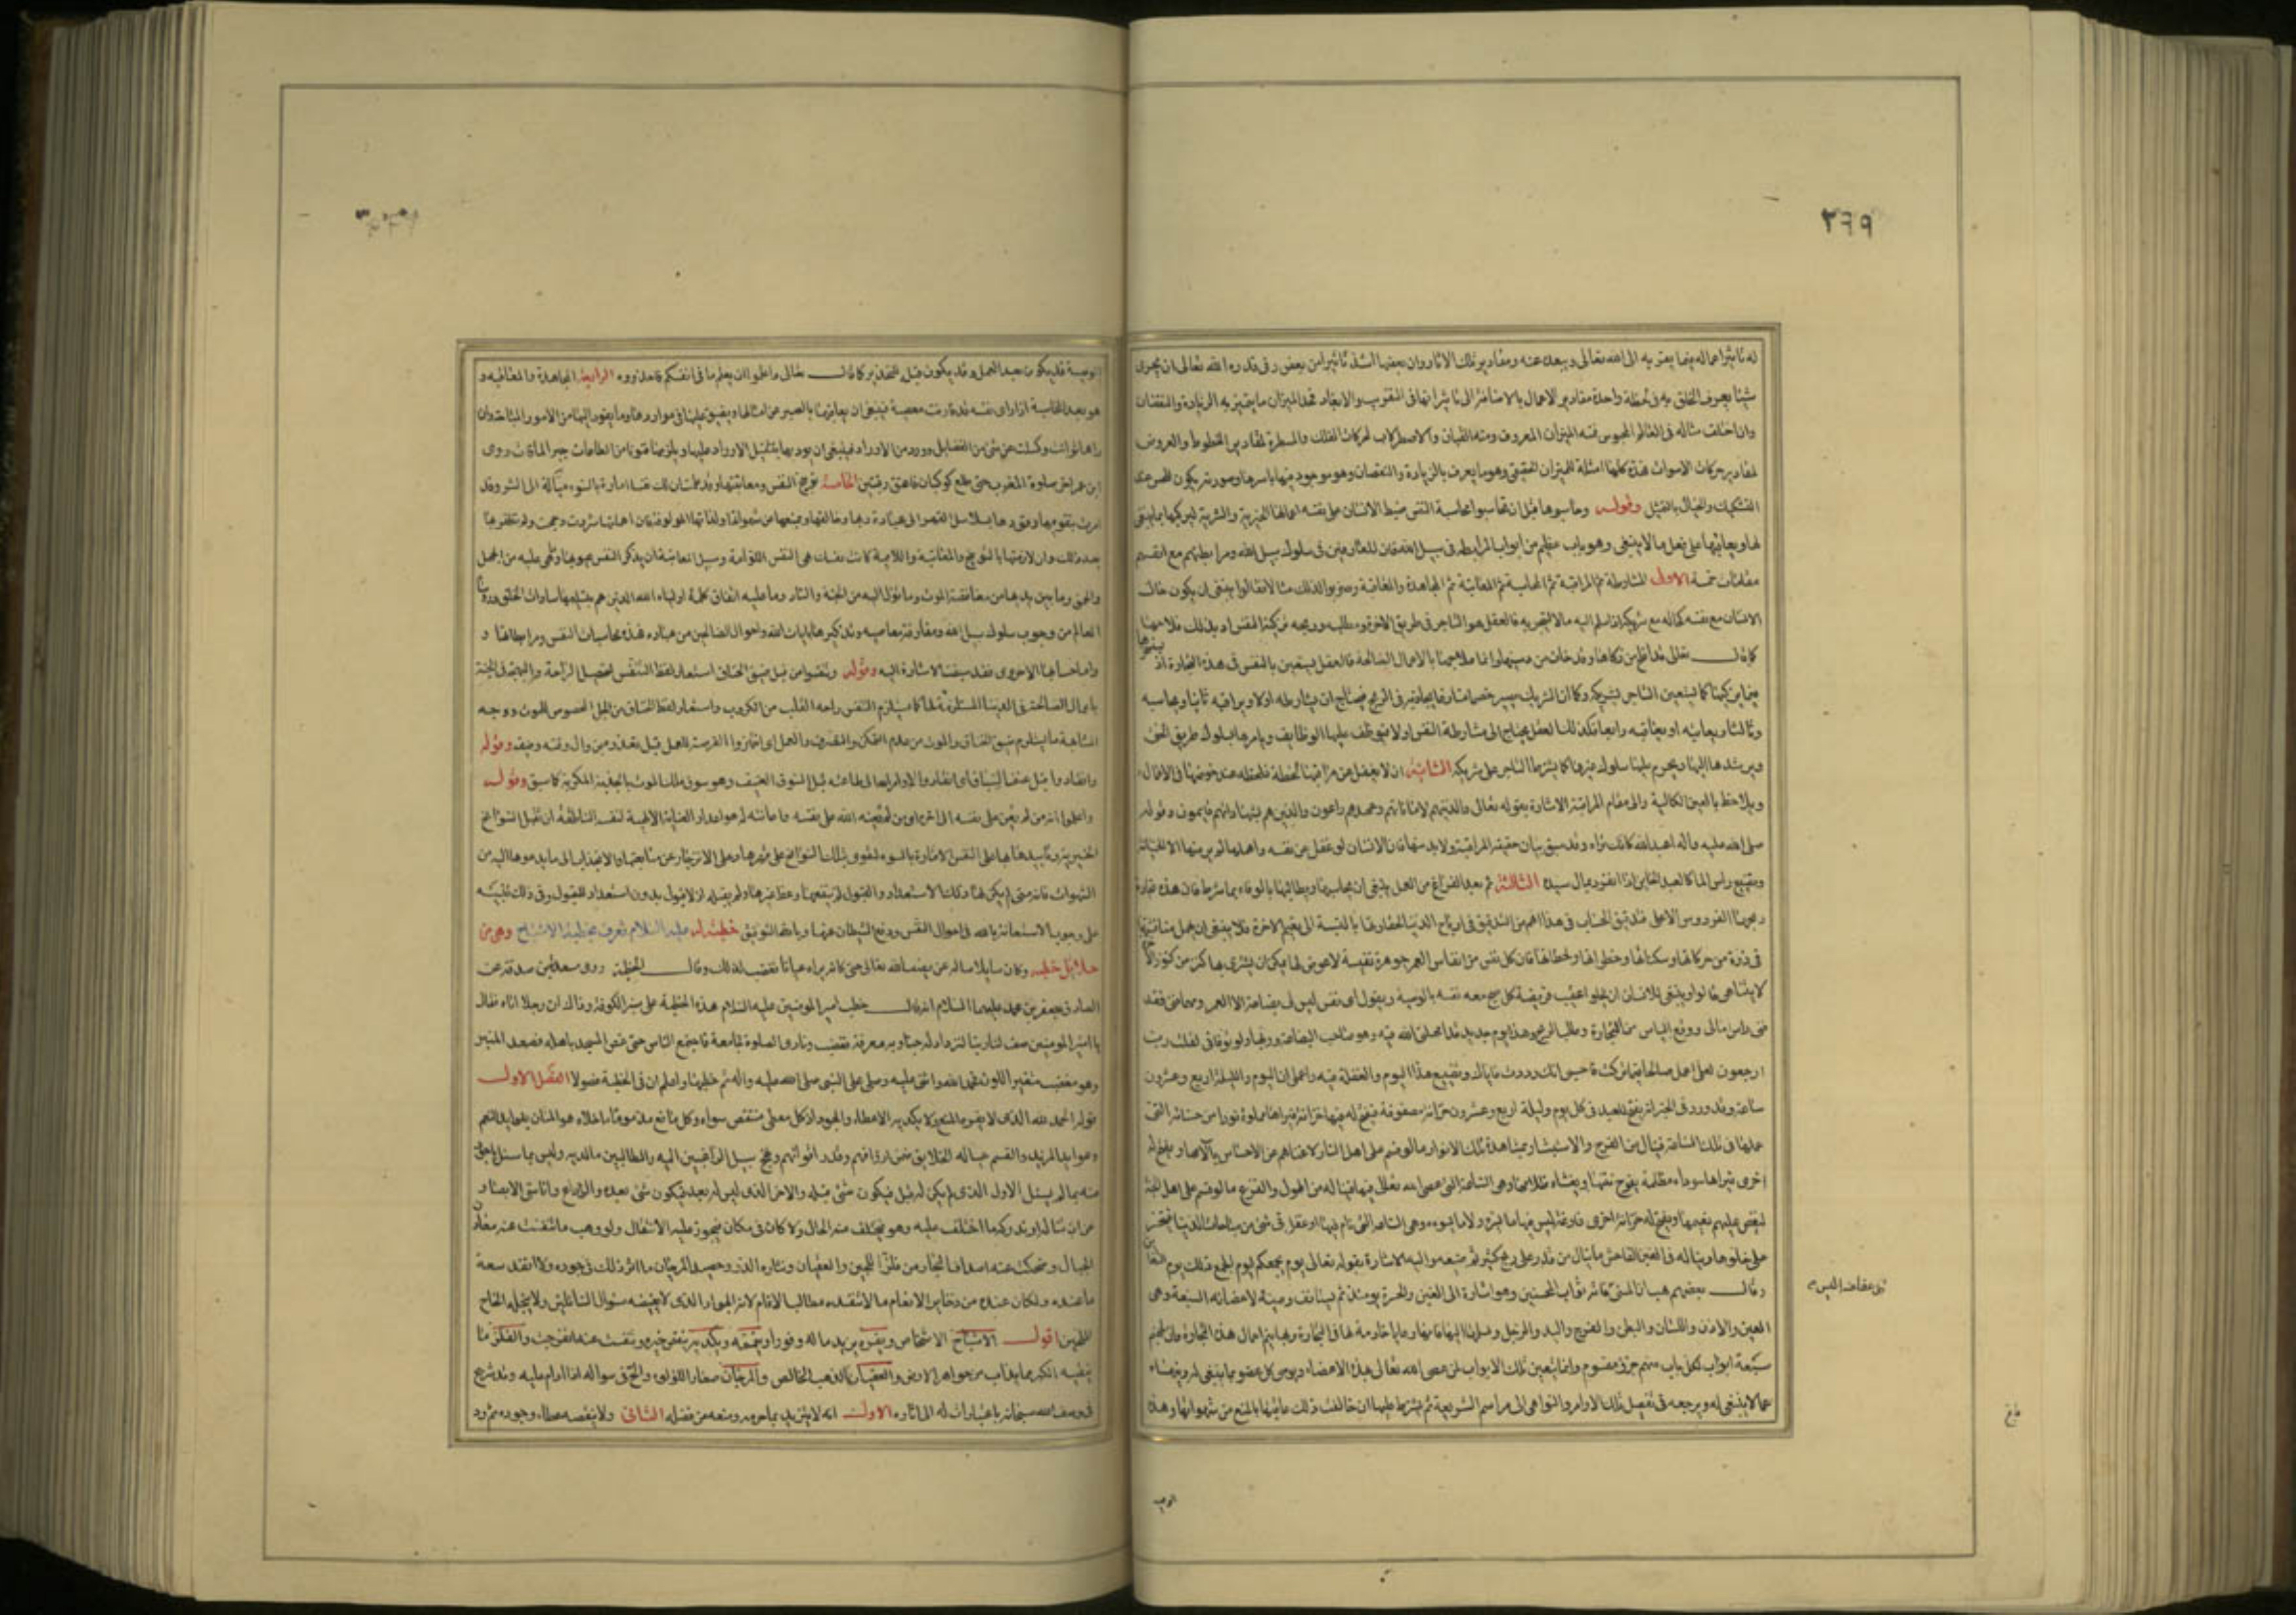 ٢٦٩
له تاثيرا عماله فيما يقربه الى الله تعالى ويبعده عنه ومقادير تلك الاثار وان بعضها اشد تاثيرا من بعض وفى قدرة الله تعالى ان يجرى
شيئا يعرف الخلق به فى لحظة واحدة مقادير الاعمال بالاضافة الى تاثيراتها فى التقريب والابعاد فحد الميزان ما يتميز به الزيادة والنقصان
وان اختلف مثاله فى العالم المحسوس فمنه الميزان المعروف ومنه القبان والاصطرلاب لحركات الفلك والمسطرة لمقادير الخطوط والعروض
لمقادير حركات الاصوات فهذه كلها امثلة للميزان الحقيقى وهو ما يعرف به الزيادة والنقصان وهو موجود فيها باسرها وصورته يكون للحس عند
التشكيل وللخيال بالتمثيل وقوله وحاسبوها قبل ان تحاسبوا محاسبة النفس ضبط الانسان على نفسه اعمالها الخيرية والشرية ليزكيها بما ينبغى
لها ويعاتبها على فعل ما لا ينبغى وهو باب عظيم من ابواب المرابطة فى سبيل الله فان للعارفين فى سلوك سبيل الله ومرابطتهم مع انفسهم
مقامات خمسة الاولى المشارطة ثم المراقبة ثم المحاسبة ثم المعاتبة ثم المجاهدة والمعاقبة وضربوا لذلك مثالا فقالوا ينبغى ان يكون حال
الانسان مع نفسه كحاله مع شريكه اذا سلم اليه مالا ليتجر به فالعقل هو التاجر فى طريق الاخرة ومطلبه وربحه تزكية النفس اذ بذلك فلاحها
كما قال تعالى قد افلح من زكاها وقد خاب من دسيها وانما علاجها بالاعمال الصالحة فالعقل يستعين بالنفس فى هذه التجارة اذ
فيما يزكيها كما يستعين التاجر بشريكه وكما ان الشريك يصير خصما منازعا يجاذبه فى الربح فيحتاج ان يشارطه اولا ويراقبه ثانيا ويحاسبه
وثالثا ويعاتبه او يعاقبه رابعا فكذلك العقل يحتاج الى مشارطة النفس اولا فيوظف عليها الوظايف ويامرها بسلوك طريق الحق
ويرشدها اليها ويحرم عليها سلوك غيرها كما يشترط التاجر على شريكه الثانية ان لا يغفل عن مراقبتها لحظة فلحظة عند خوضها فى الاعمال
ويلاحظها بالعين الكالية والى مقام المراقبة الاشارة بقوله تعالى والذين هم لاماناتهم وعهدهم راعون والذين هم بشهاداتهم قايمون وقوله
صلى الله عليه واله اعبد الله كانك تراه وقد سبق بيان حقيقة المراقبة ولا بد منها فان الانسان لو غفل عن نفسه واهملها لم ير منها الا الخيانة
وتضييع راس المال كالعبد الخاين اذا انفرد بمال سيده الثالثة ثم بعد الفراغ من العمل ينبغى ان يحاسبها ويطالبها بالوفاء بما شرط فان هذه تجارة
ربحها الفردوس الاعلى فتدقيق الحساب فى هذا اهم من التدقيق فى ارباح الدنيا لحقارتها بالنسبة الى نعيم الاخرة فلا ينبغى ان يهمل مناقشتها
فى ذرة من حركاتها وسكناتها وخطراتها ولحظاتها فان كل نفس من انفاس العمر جوهرة نفيسة لا عوض لها يمكن ان يشترى بها كنز من كنوز
لا يتناهى قالوا وينبغى للانسان ان يخلو عقيب فريضة كل صبح مع نفسه بالوصية ويقول اى نفس ليس لى بضاعة الا العمر ومهما فنى فقد
فنى راس مالى ووقع الياس من التجارة وطلب الربح وهذا يوم جديد قد امهلنى الله فيه وهو صاحب البضاعة وربها ولو توفانى لقلت رب
ارجعون لعلى اعمل صالحا فيما تركت فاحسبى انك رددت فاياك وتضييع هذا اليوم والغفلة فيه واعلمى ان اليوم والليلة اربع وعشرون
ساعة وقد ورد فى الخبر انه يفتح للعبد فى كل يوم وليلة اربع وعشرون خزانة مصفوفة فيفتح له منها خزانة فيراها مملوة نورا من حسناته التى
عملها فى تلك الساعة فينال من الفرح والاستبشار بمشاهدة تلك الانوار ما لو قسم على اهل النار لاغناهم عن الاحساس بآلامها ويفتح له
اخرى فيراها سوداء مظلمة يفوح نتنها ويغشاه ظلامها وهى الساعة التى عصى الله تعالى فيها فيناله من الهول والفزع ما لو قسم على اهل الجنة
لنغص عليهم نعيمها ويفتح له خزانة اخرى فارغة ليس فيها ما يسره ولا ما يسوءه وهى الساعة التى نام فيها او غفل فى شئ من مباحات الدنيا فيتحسر
على خلوها ويناله من الغبن الفاحش ما ينال من قدر على ربح كثير ثم ضيعه واليه الاشارة بقوله تعالى يوم يجمعكم ليوم الجمع ذلك يوم التغابن
وقال بعضهم هب ان المسئ قد عفى عنه اليس قد فاته ثواب المحسنين وهو اشارة الى الغبن والحسرة يومئذ ثم يستانف وصية لاعضائه السبعة وهى
العين والاذن واللسان والبطن والفرج واليد والرجل ويسلمها اليها فانها رعايا خادمة لها فى التجارة وبها يتم اعمال هذه التجارة وان لجهنم
سبعة ابواب لكل باب منهم جزء مقسوم وانما يتعين تلك الابواب لمن عصى الله تعالى بهذه الاعضاء ويوصى كل عضو بما ينبغى له وينهاه
عما لا ينبغى له ويرجعه فى تفصيل تلك الاوامر والنواهى الى مراسم الشريعة ثم يشترط عليها ان خالفت ذلك عاقبها بالمنع من شهواتها وهذه
الوصية قد يكون بعد العمل وقد يكون قبله للتحذير كما قال تعالى واعلموا ان الله يعلم ما فى انفسكم فاحذروه الرابعة المجاهدة والمعاقبة و
هو بعد المحاسبة اذا راى نفسه قد قارفت معصية فينبغى ان يعاقبها بالصبر عن امثالها ويضيق عليها فى مواردها وما يقود اليها من الامور المباحة وان
راها توانت وكسلت عن شئ من الفضايل وورد من الاوراد فينبغى ان يودبها بتثقيل الاوراد عليها ويلزمها فنونا من الطاعات جبرا لما فات روى
ابن عمر اخر صلوة المغرب حتى طلع كوكبان فاعتق رقبتين الخامسة توبيخ النفس ومعاتبتها وقد علمت ان لك نفسا امارة بالسوء ميالة الى الشر وقد
امرت بتقويمها وقودها بسلاسل القهر الى عبادة ربها وخالقها ومنعها من شهواتها ولذاتها المالوفة فان اهملتها شردت وجمحت ولم تظفر بها
بعد ذلك وان لازمتها بالتوبيخ والمعاتبة واللايمة كانت نفسك هى النفس اللوامة وسبيل المعاتبة ان يذكر النفس عيوبها وما هى عليه من الجهل
والحمق وما بين يديها من مغافصة الموت وما تؤل اليه من الجنة والنار وما عليه اتفاق كلمة اولياء الله الذين هم بتسليمها سادات الخلق ورؤسا
العالم من وجوب سلوك سبيل الله ومفارقة معاصيه وتذكيرها بايات الله واحوال الصالحين من عباده فهذه محاسبات النفس ومرابطاتها و
واما حسابها الاخروى فقد سبقت الاشارة اليه وقوله وتنفسوا من قبل ضيق الخناق استعار لفظ التنفس لتحصيل الراحة والبهجة فى الجنة
بالاعمال الصالحة فى الدنيا المستلزمة لها كما يستلزم التنفس راحة القلب من الكروب واستعار لفظ الخناق من الحبل المخصوص للموت ووجه
المشابهة ما يستلزم ضيق الخناق والموت من عدم التمكن والتصرف والعمل اى انتهزوا الفرصة للعمل قبل تعذره من زوال وقته وضيقه وقوله
وانقادوا قبل عنف السياق اى انقادوا لاوامر الله الى طاعته قبل السوق العنيف وهو سوق ملك الموت بالجذبة المكربة كما سبق وقوله
واعلموا انه من لم يعن على نفسه الى اخره اى من لم يعنه الله على نفسه واعانته له هو اعداد العناية الالهية لنفسه الناطقة ان تقبل السوانح
الخيرية وتاييدها بها على النفس الامارة بالسوء لتقوى بتلك السوانح على قهرها وعلى الانزجار عن متابعتها والانجذاب الى ما يدعوها اليه من
الشهوات فانه متى لم يكن لها ذلك الاستعداد والقبول لم ينفعها وعظ غيرها ولم يقبله اذ لا قبول بدون استعداد للقبول وفى ذلك تنبيه
على وجوب الاستعانة بالله فى احوال النفس ودفع الشيطان عنها وبالله التوفيق خطبة له عليه السلام تعرف بخطبة الاشباح وهى من
جلايل خطبه وكان سايلا ساله عن يصف الله تعالى حتى كانه يراه عيانا فغضب لذلك وقال الخطبة روى مسعدة بن صدقة عن
الصادق جعفر بن محمد عليهما السلام انه قال خطب امير المومنين عليه السلام هذه الخطبة على منبر الكوفة وذلك ان رجلا اتاه فقال
يا امير المومنين صف لنا ربنا لنزداد له حبا وبه معرفة فغضب ونادى الصلوة جامعة فاجتمع الناس حتى غص المسجد باهله فصعد المنبر
وهو مغضب متغير اللون فحمد الله واثنى عليه وصلى على النبى صلى الله عليه واله ثم خطبها واعلم ان فى الخطبة فصولا الفصل الاول
قوله الحمد لله الذى لا يفره المنع ولا يكديه الاعطاء والجود اذ كل معطى منتقص سواه وكل مانع مذموم ما خلاه هو المنان بفوايد النعم
وعوايد المزيد والقسم عياله الخلايق ضمن ارزاقهم وقدر اقواتهم ونهج سبيل الراغبين اليه والطالبين ما لديه وليس بما سئل باجود
منه بما لم يسئل الاول الذى لم يكن له قبل فيكون شئ قبله والاخر الذى ليس له بعد فيكون شئ بعده والرادع اناسى الابصار
عن ان تناله او تدركه ما اختلف عليه دهر فيختلف منه الحال ولا كان فى مكان فيجوز عليه الانتقال ولو وهب ما تنفست عنه معادن
الجبال وضحكت عنه اصداف البحار من فلز اللجين والعقيان ونثارة الدر وحصيد المرجان ما اثر ذلك فى جوده ولا انفد سعة
ما عنده ولكان عنده من ذخاير الانعام ما لا تنفده مطالب الانام لانه الجواد الذى لا يغيضه سؤال السائلين ولا يبخله الحاح
الملحين اقول الاشباح الاشخاص ويفره يزيد ماله وفورا ويتممه ويكديه ينقص خيره وتنفست عنه انفرجت والفلز ما
ينقيه الكير مما يذاب من جواهر الارض والعقيان الذهب الخالص والمرجان صغار اللؤلؤ والح فى سواله اذا ادام عليه وقد شرع
فى وصف الله سبحانه باعتبارات له الى اثاره الاولى انه لا يتزيد بما حرمه ومنعه من فضله الثانى ولا ينقصه عطاؤه وجوده ثم رد